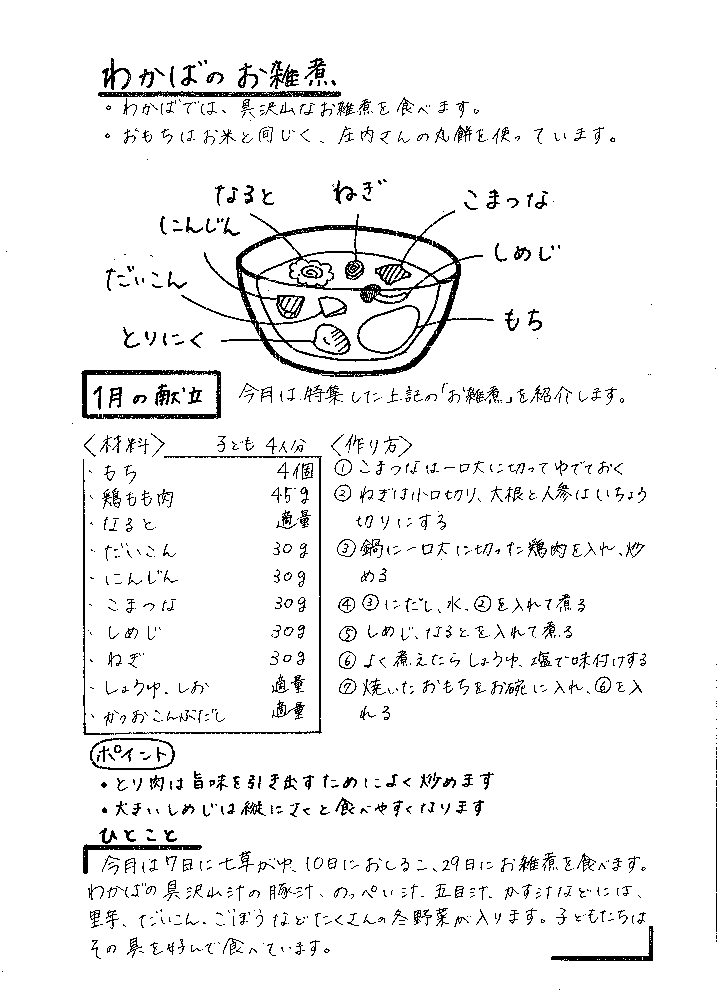 わかばのお雑煮
・わかばでは、具沢山なお雑煮を食べます。
・おもちはお米と同じく、庄内さんの丸餅を使っています。
なると
ねぎ
こまつな
にんじん
しめじ
だいこん
とりにく
もち
1月の献立
今月は特集した上記の「お雑煮」を紹介します。
〈材料〉 子ども 4人分
・もち 4個
・鶏もも肉 45g
・なると 適量
・だいこん 30g
・にんじん 30g
・こまつな 30g
・しめじ 30g
・ねぎ 30g
・しょうゆ、しお 適量
・かつおこんぶだし 適量
〈作り方〉
① こまつなは一口大に切ってゆでておく
② ねぎは小口切り、大根と人参はいちょう
切りにする
③ 鍋に一口大に切った鶏肉を入れ、炒
める
④ ③にだし、水、②を入れて煮る
⑤ しめじ、なるとを入れて煮る
⑥ よく煮えたらしょうゆ、塩で味付けする
⑦ 焼いたおもちをお碗に入れ、⑥を入
れる
ポイント
・とり肉は旨味を引き出すためによく炒めます
・大きいしめじは縦にさくと食べやすくなります
ひとこと
今月は7日に七草がゆ、10日におしるこ、29日にお雑煮を食べます。
わかばの具沢山汁の豚汁、のっぺい汁、五目汁、かす汁などには、
里芋、だいこん、ごぼうなどたくさんの冬野菜が入ります。子どもたちは
その具を好んで食べています。